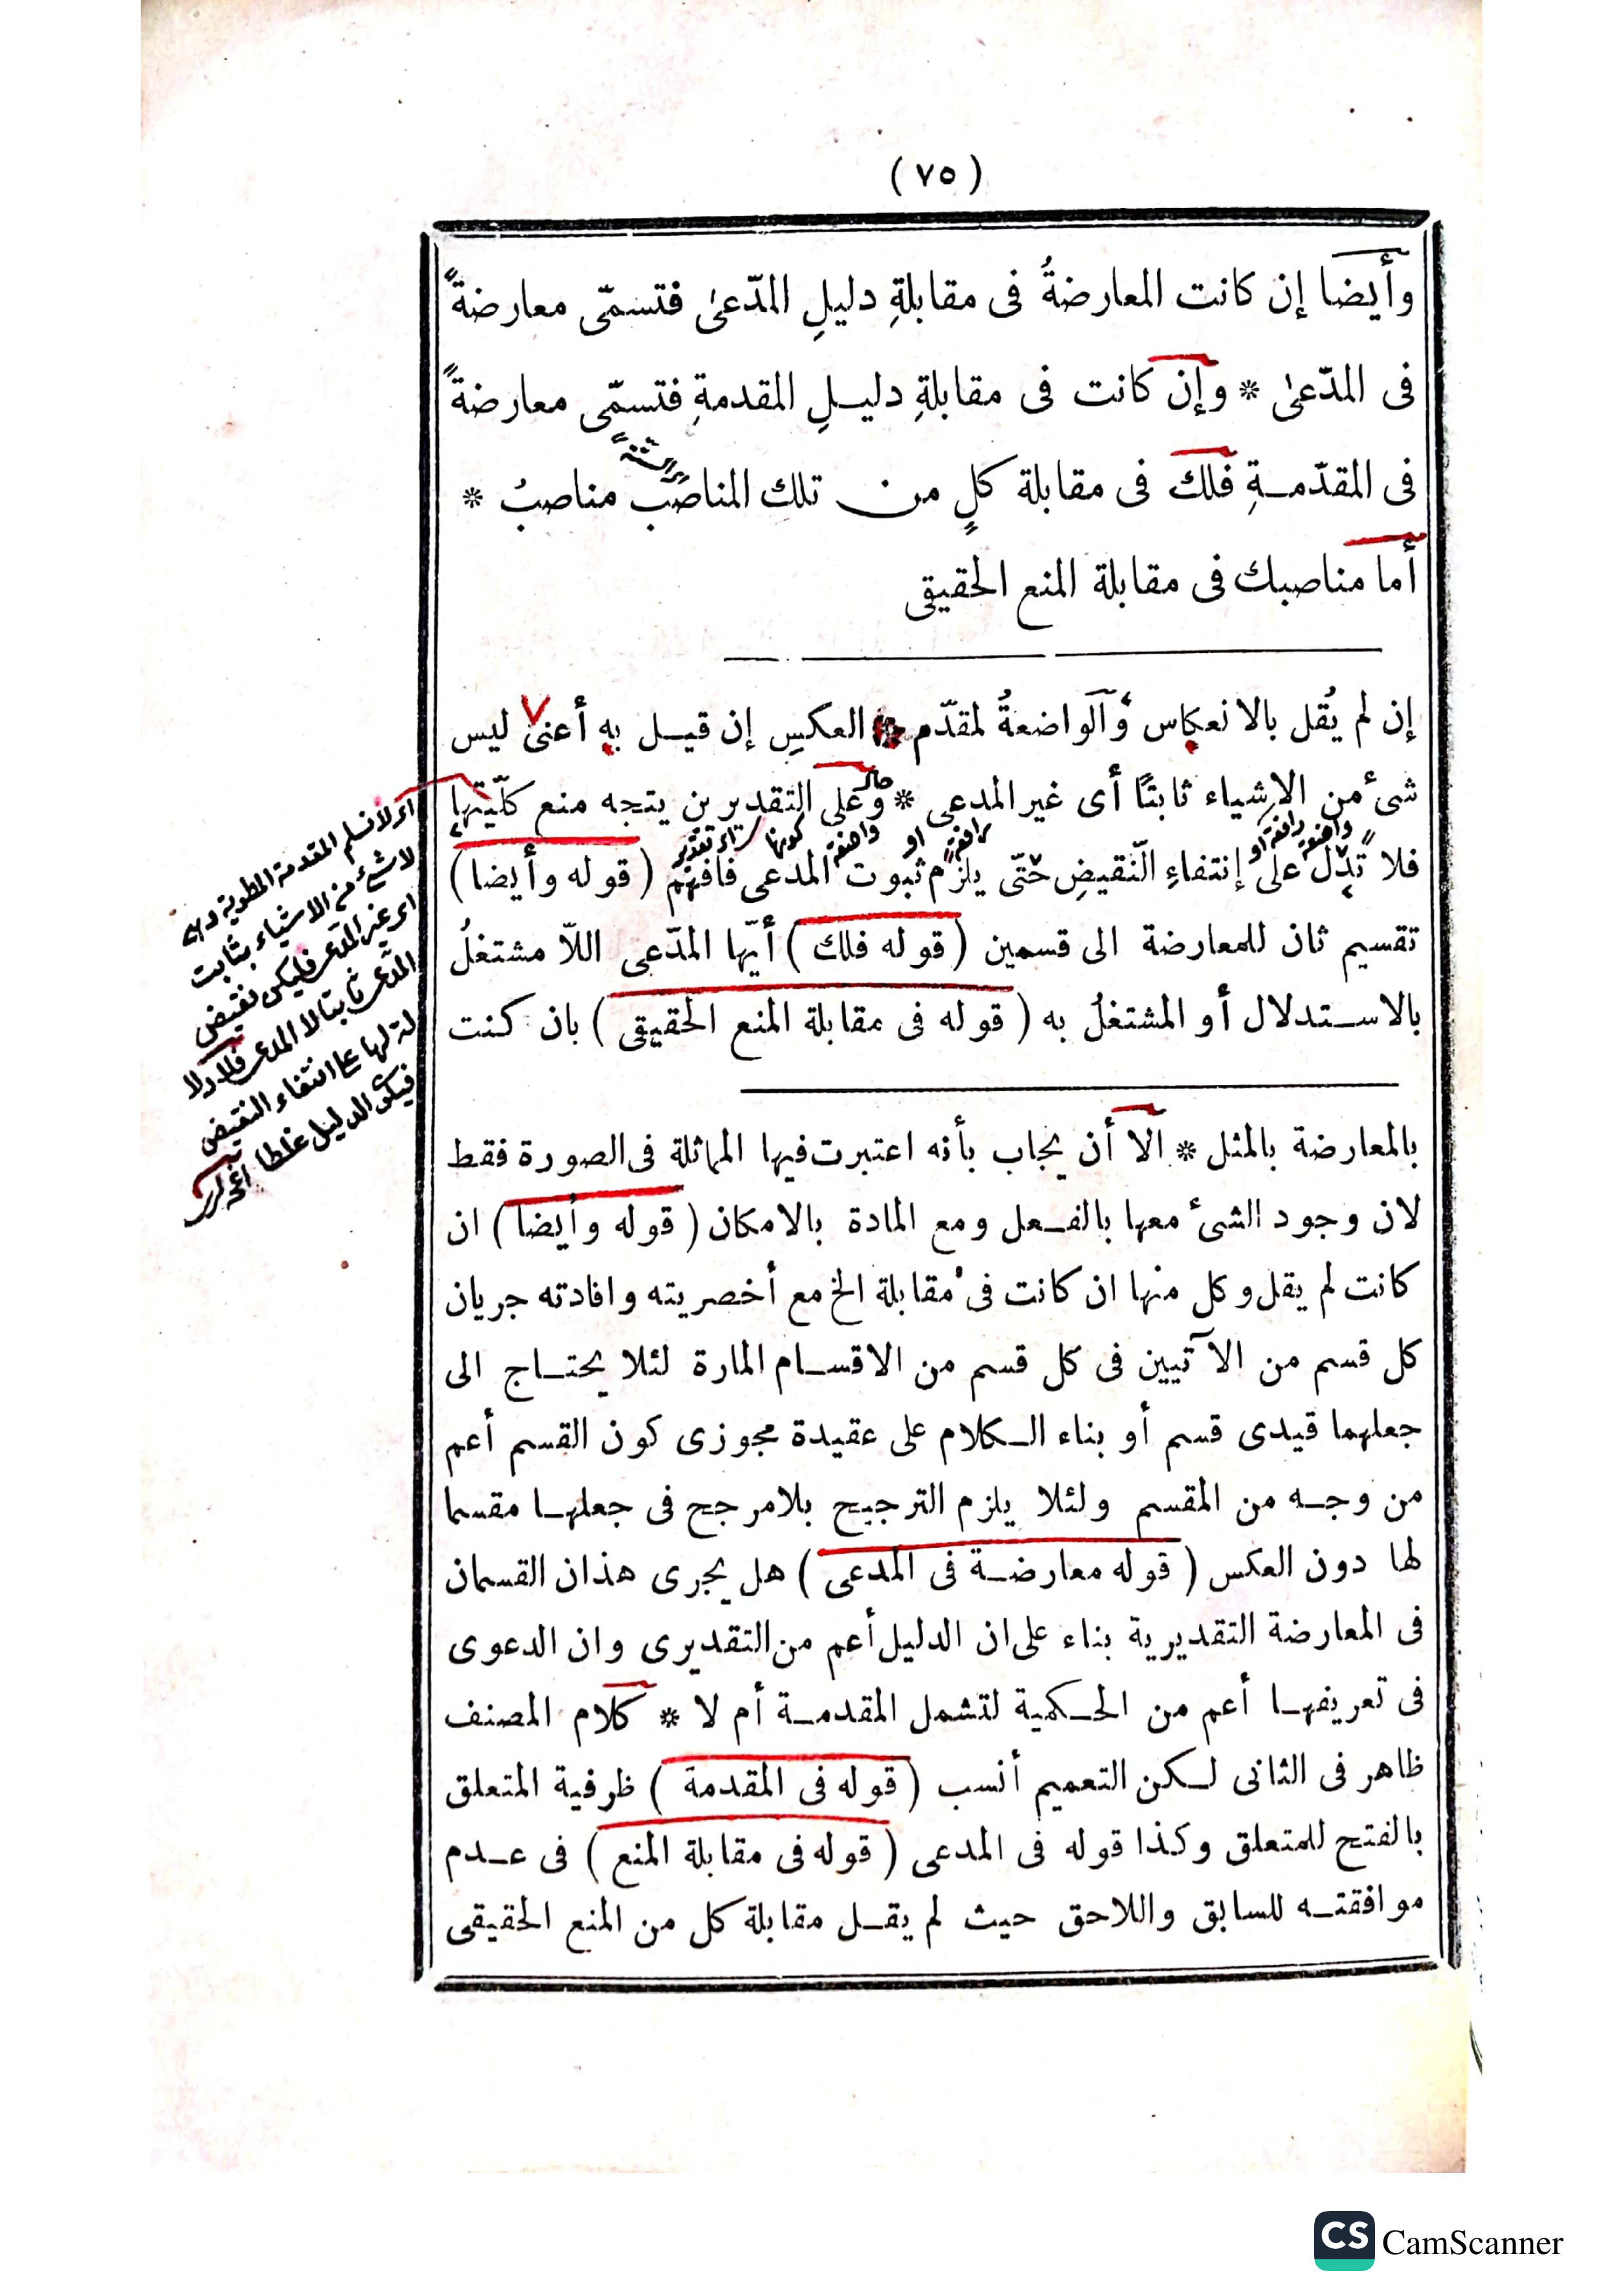 (٧٥)
وأيضا إن كانت المعارضةُ فى مقابلةِ دليلِ المدّعىٰ فتسمّى معارضةً
فى المدّعىٰ * وإن كانت فى مقابلةِ دليلِ المقدمةِ فتسمّى معارضةً
فى المقدّمةِ فلك فى مقابلة كلٍ من تلك المناصب مناصبُ *
أما مناصبك فى مقابلة المنع الحقيقى
إن لم يُقل بالانعكاس والواضعةُ لمقدّم العكسِ إن قيل به أعنى ليس
شئ من الاشياء ثابتًا أى غير المدعى * وعلى التقديرين يتجه منع كلّيتها
فلا تدّل على إنتفاءِ النّقيضِ حتّى يلزم ثبوت المدعى فافهم (قوله وأيضا)
تقسيم ثان للمعارضة الى قسمين (قوله فلك) أيّها المدّعى اللّا مشتغلُ
بالاستدلال أو المشتغلُ به (قوله فى مقابلة المنع الحقيقى) بان كنت
بالمعارضة بالمثل * الا أن يجاب بأنه اعتبرت فيها المماثلة فى الصورة فقط
لان وجود الشئ معها بالفعل ومع المادة بالامكان (قوله وأيضا) ان
كانت لم يقل وكل منها ان كانت فى مقابلة الخ مع أخصريته وافادته جريان
كل قسم من الآتيين فى كل قسم من الاقسام المارة لئلا يحتاج الى
جعلهما قيدى قسم أو بناء الكلام على عقيدة مجوزى كون القسم أعم
من وجه من المقسم ولئلا يلزم الترجيح بلامرجح فى جعلها مقسما
لها دون العكس (قوله معارضة فى المدعى) هل يجرى هذان القسمان
فى المعارضة التقديرية بناء على ان الدليل أعم من التقديرى وان الدعوى
فى تعريفها أعم من الحكمية لتشمل المقدمة أم لا * كلام المصنف
ظاهر فى الثانى لكن التعميم أنسب (قوله فى المقدمة) ظرفية المتعلق
بالفتح للمتعلق وكذا قوله فى المدعى (قوله فى مقابلة المنع) فى عدم
موافقته للسابق واللاحق حيث لم يقل مقابلة كل من المنع الحقيقى
اى لا نسلم المقدمة المطوية وهى
لا شئ من الاشياء بثابت
اى غير المدعى فليكن نقيض
المدعى ثابتا لا المدعى فلا دلا
لة لها على انتفاء النقيض
فيكون الدليل غلطا
CS CamScanner